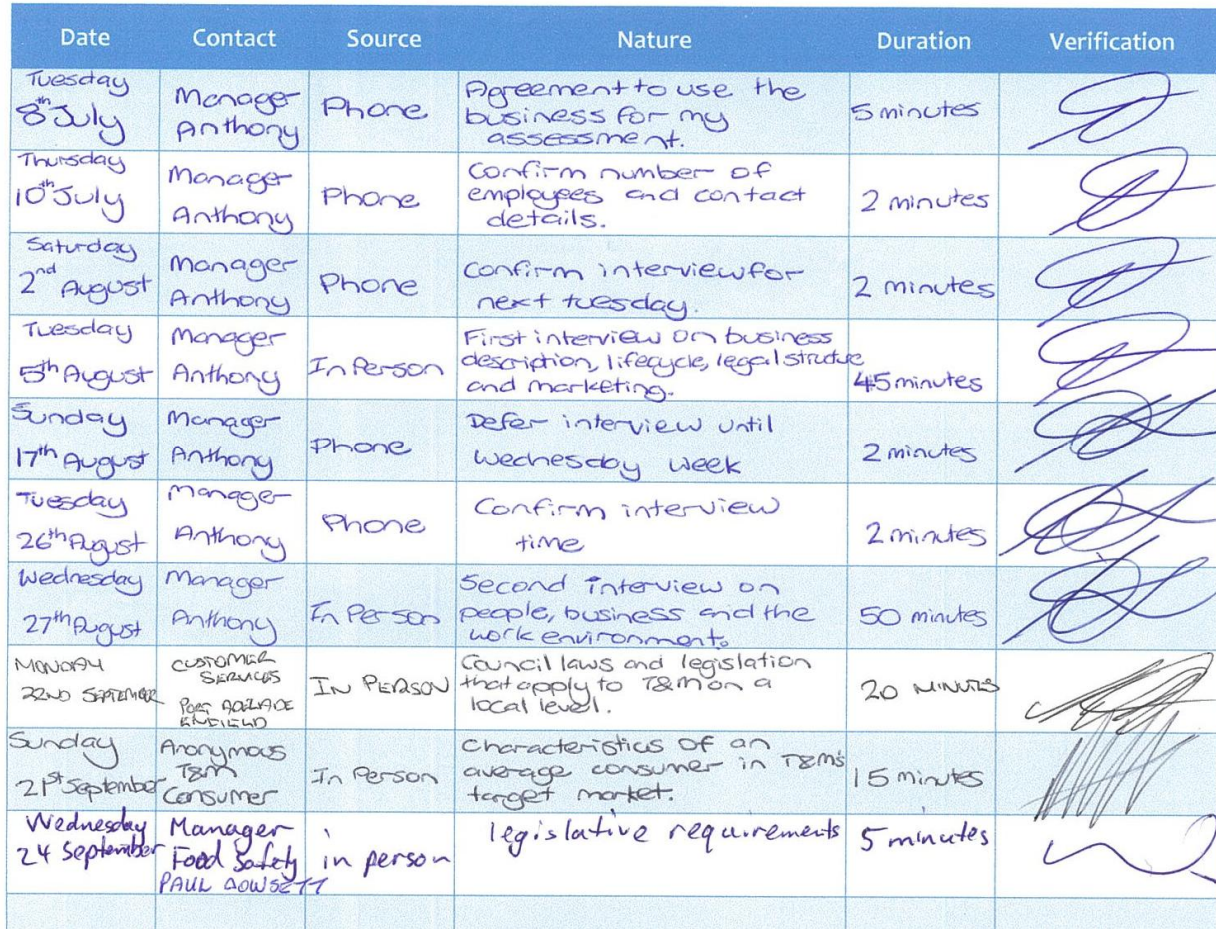 Date Contact Source Nature Duration Verification
Tuesday
8th July
Manager
Anthony
Phone
Agreement to use the
business for my
assessment.
5 minutes
Thursday
10th July
Manager
Anthony
Phone
Confirm number of
employees and contact
details.
2 minutes
Saturday
2nd August
Manager
Anthony
Phone
Confirm interview for
next tuesday.
2 minutes
Tuesday
5th August
Manager
Anthony
In Person
First interview on business
description, lifecycle, legal structure
and marketing.
45 minutes
Sunday
17th August
Manager
Anthony
Phone
Defer interview until
Wednesday week
2 minutes
Tuesday
26th August
Manager
Anthony
Phone
Confirm interview
time
2 minutes
Wednesday
27th August
Manager
Anthony
In Person
Second interview on
people, business and the
work environment.
50 minutes
MONDAY
22ND SEPTEMBER
CUSTOMER
SERVICES
PORT ADELAIDE
ENFIELD
IN PERSON
Council laws and legislation
that apply to T&M on a
local level.
20 MINUTES
Sunday
21st September
Anonymous
T&M
Consumer
In Person
Characteristics of an
average consumer in T&M's
target market.
15 minutes
Wednesday
24 September
Manager
Food Safety
PAUL DOWSETT
in person
legislative requirements
5 minutes